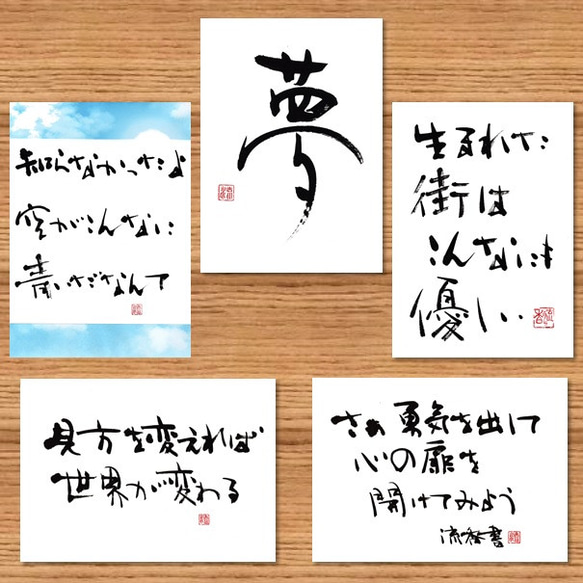 夢
知らなかったよ
空がこんなに
青いだなんて
生まれた
街は
こんなにも
優しい
見方を変えれば
世界が変わる
さぁ勇気を出して
心の扉を
開けてみよう